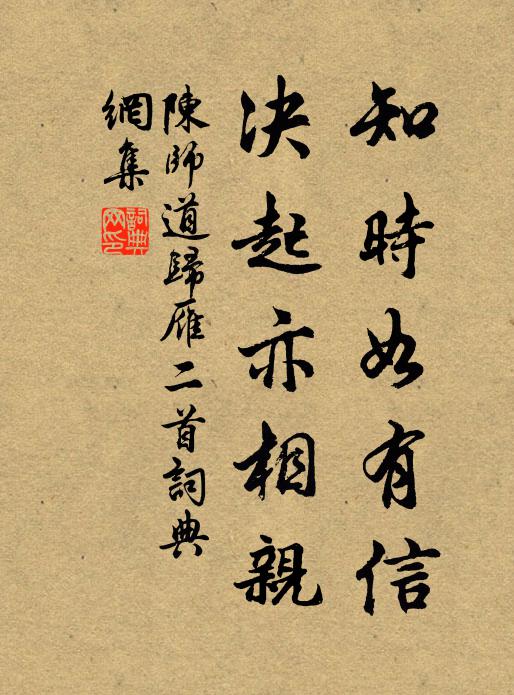 知時如有信
決起亦相親
陳師道歸雁二首詞典
網集
詞典
网印